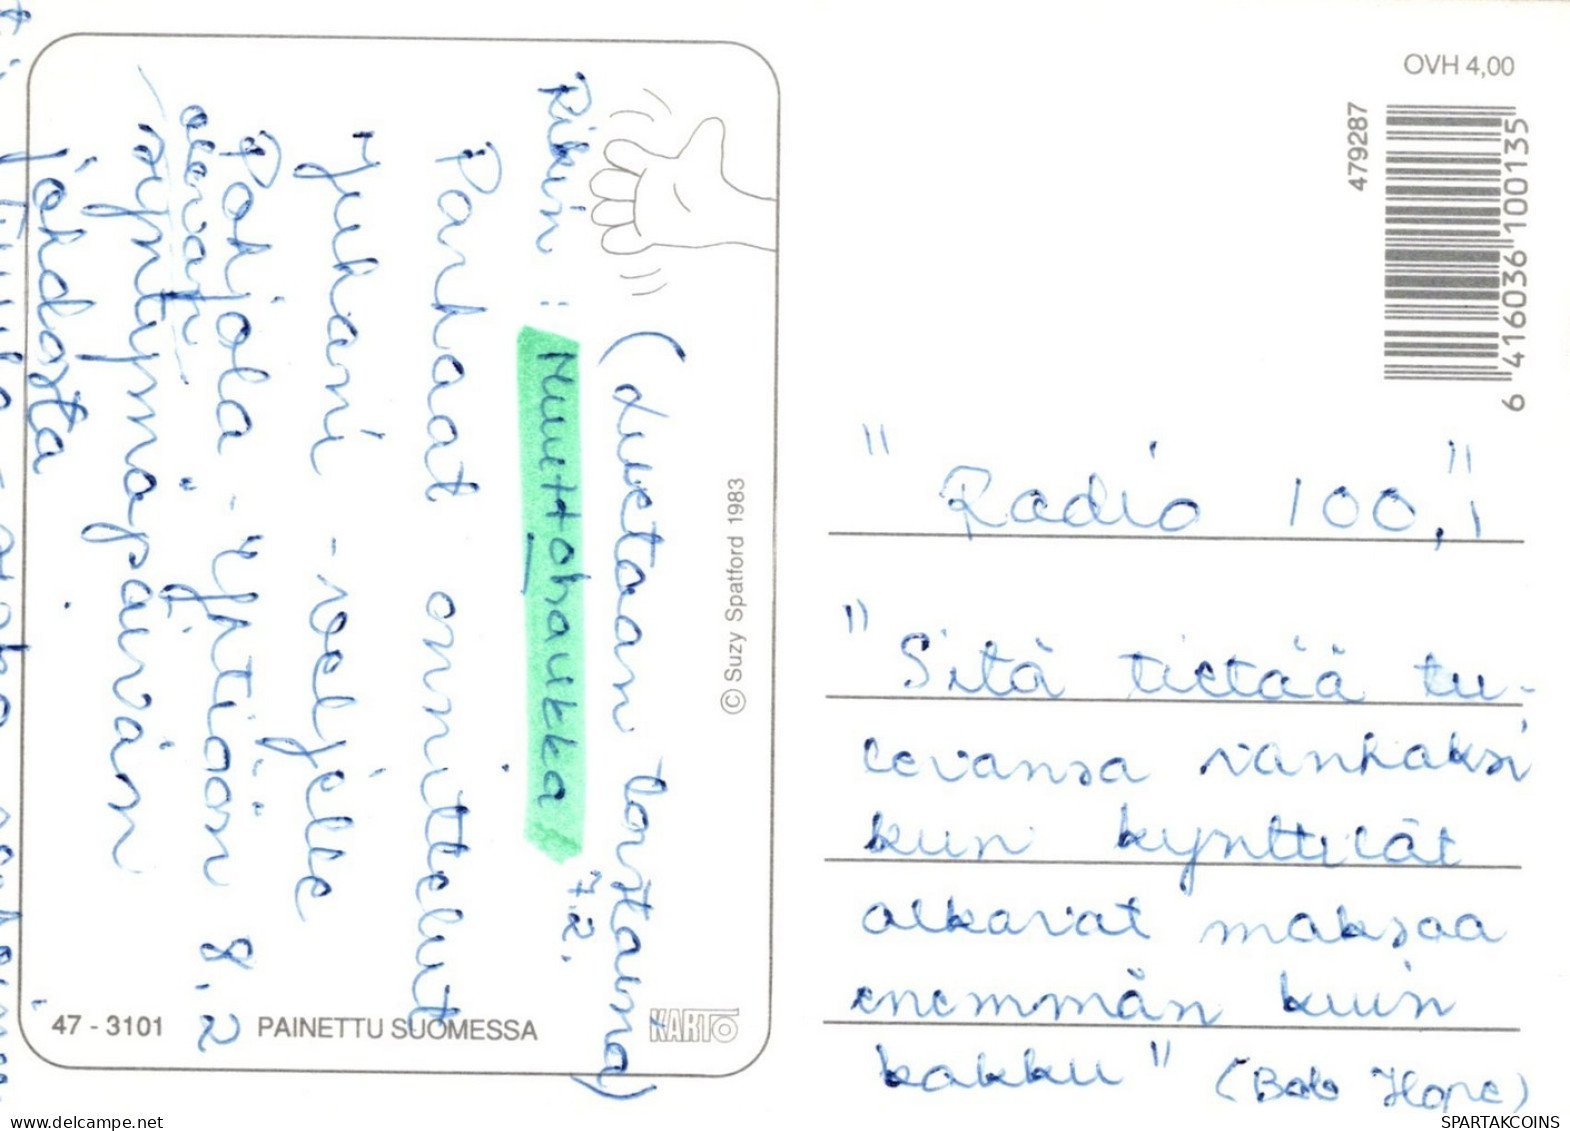 (Luetaan torstaina)
7.2.
Rikin : Muuttohaukka
Parhaat onnittelut
Juhani -veljelle
Pohjola - Yhtiöön 8.2
olevan
syntymäpäivän
johdosta
"Radio 100,1"
"Sitä tietää tu-
levansa vanhaksi
kun kynttilät
alkavat maksaa
enemmän kuin
kakku" (Bob Hope)
OVH 4,00
479287
6 416036 100135
© Suzy Spafford 1983
47 - 3101 PAINETTU SUOMESSA
KARTO
SPARTAKCOINS
delcampe.net